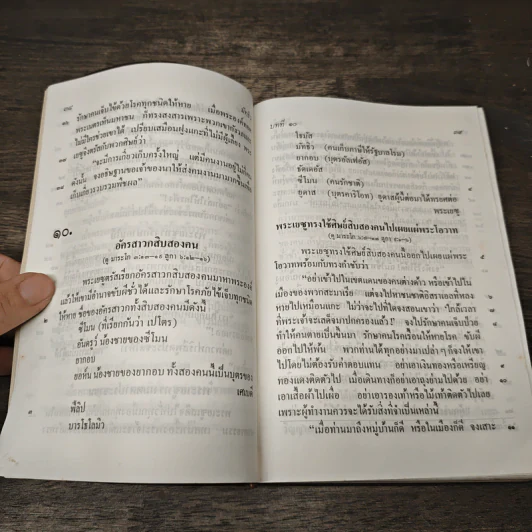 ๓๕
รักษาคนเจ็บไข้ด้วยโรคทุกชนิดให้หาย เมื่อพระองค์
พระเนตรเห็นมหาชน ก็ทรงสงสารเพราะพวกเขา
ไม่มีใครช่วยเขาได้ เปรียบเสมือนฝูงแกะที่ไม่มีผู้เลี้ยง
เยซูจึงตรัสกับพวกศิษย์ว่า
๓๗ “จะมีการเกี่ยวเก็บครั้งใหญ่ แต่มีคนงานอยู่ไม่
๓๘ ดังนั้น จงอธิษฐานขอเจ้าของนาให้ส่งคนงานมามาก
เก็บเกี่ยวรวบรวมพืชผล”
๑๐.
อัครสาวกสิบสองคน
(ดู มาระโก ๓:๑๓-๑๙ ลูกา ๖:๑๒-๑๖)
พระเยซูตรัสเรียกอัครสาวกสิบสองคนมาหาพระองค์
แล้วให้เขามีอำนาจขับผีชั่วได้และรักษาโรคภัยไข้เจ็บทุกชนิด
๒ ให้หาย ชื่อของอัครสาวกทั้งสิบสองคนมีดังนี้
ซีโมน (ที่เรียกกันว่า เปโตร)
อันดรูว์ น้องชายของซีโมน
ยากอบ
ยอห์น น้องชายของยากอบ ทั้งสองคนนี้เป็นบุตรของ
เศเบดี
๓ ฟีลิป
บารโธโลมิว
บทที่ ๑๐
โธมัส
มัทธิว (คนเก็บภาษีให้รัฐบาลโรม)
ยากอบ (บุตรอัลเฟอัส)
ธัดเดอัส
ซีโมน (คนรักชาติ) ๔
ยูดาส (บุตรคาริโอท) ยูดาสผู้นี้ต่อมาได้ทรยศต่อ
พระเยซู
พระเยซูทรงใช้ศิษย์สิบสองคนไปเผยแผ่พระโอวาท
(ดู มาระโก ๖:๗-๑๓ ลูกา ๙:๑-๖)
พระเยซูทรงใช้ศิษย์สิบสองคนนี้ออกไปเผยแผ่พระ ๕
โอวาทพร้อมกับทรงกำชับว่า
“อย่าเข้าไปในเขตแดนของคนต่างด้าว หรือเข้าไปใน
เมืองของพวกสะมาเรีย แต่จงไปหาชนชาติอิสราเอลที่หลง ๖
หายไปเหมือนแกะ ไม่ว่าจะไปที่ใดจงสอนเขาว่า ‘ใกล้เวลา ๗
ที่พระเจ้าจะเสด็จมาปกครองแล้ว!’ จงไปรักษาคนเจ็บป่วย ๘
ทำให้คนตายเป็นขึ้นมา รักษาคนโรคเรื้อนให้หายโรค ขับผี
ออกไปให้พ้น พวกท่านได้ทุกอย่างมาเปล่า ๆ ก็จงให้เขา
ไปโดยไม่ต้องรับค่าตอบแทน อย่าเอาเงินทองหรือเหรียญ ๙
ทองแดงติดตัวไป เมื่อเดินทางก็อย่าเอาถุงย่ามไปด้วย อย่า ๑๐
เอาเสื้อผ้าไปเผื่อ อย่าเอารองเท้าหรือไม้เท้าติดตัวไปเลย
เพราะผู้ทำงานควรจะได้รับสิ่งที่จำเป็นเหล่านี้
“เมื่อท่านมาถึงหมู่บ้านก็ดี หรือในเมืองก็ดี จงเสาะ ๑๑